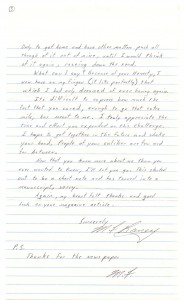 Only to get home and have other motion push all
though of it out of mind, until I would think
of it again, coming down the road.
What can I say? Because of your honesty, I
now have on my finger (it fits perfectly) that
which I had only dreamed of ever having again.
It's difficult to express how much the
fact that you cared, enough to go that extra
mile, has meant to me. I truly appreciate the
time and effort you expended on this challenge.
I hope to get together in the future and shake
your hand. People of your caliber are few and
far between.
Now that you know more about me than you
ever wanted to know, I'll let you go. This started
out to be a short note and has turned into a
manuscript
Again, my heart felt thanks and good
luck on your magazine article.
Sincerely,
P.S.
Thanks for the newspaper